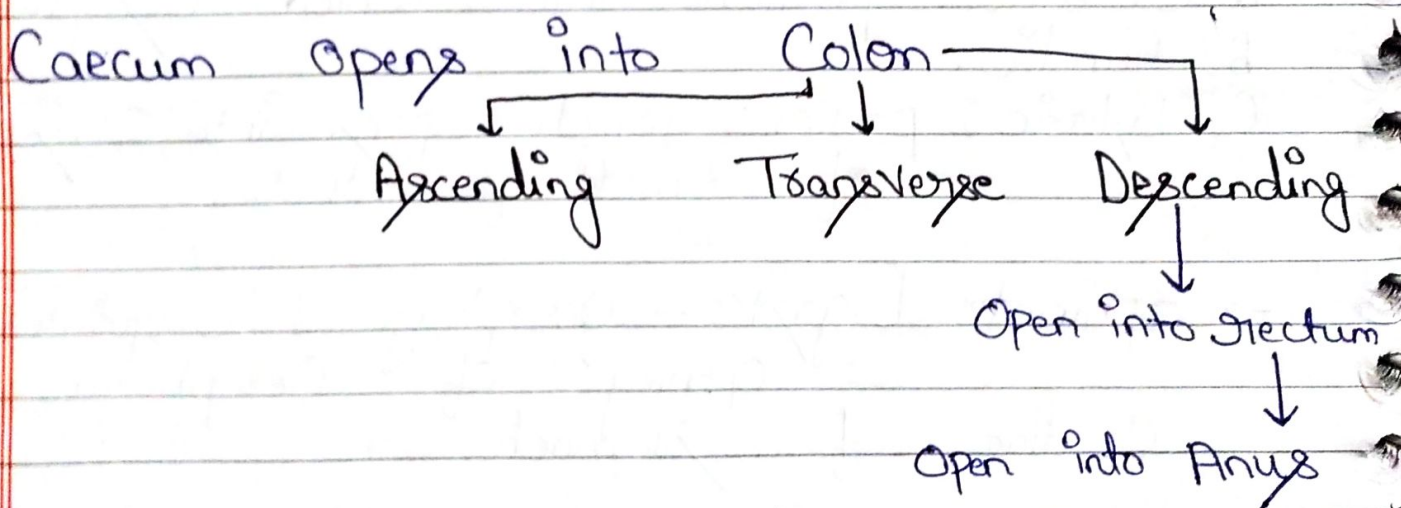 Caecum opens into Colon
Ascending Transverse Descending
Open into rectum
Open into Anus